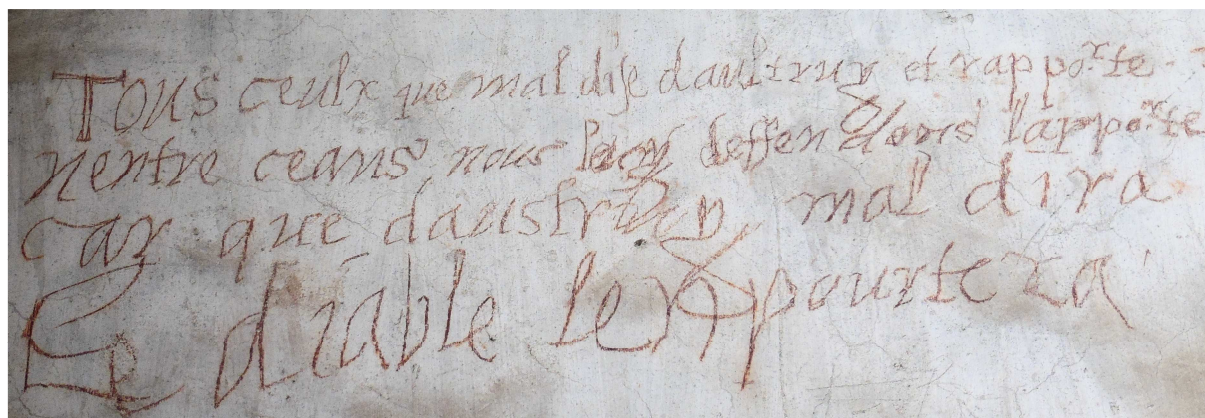 Tous ceulx que mal dise daultruy et rapporte
nentre ceans nous leur deffendons lapporte
car que daustruy mal dira
Le diable lemportera